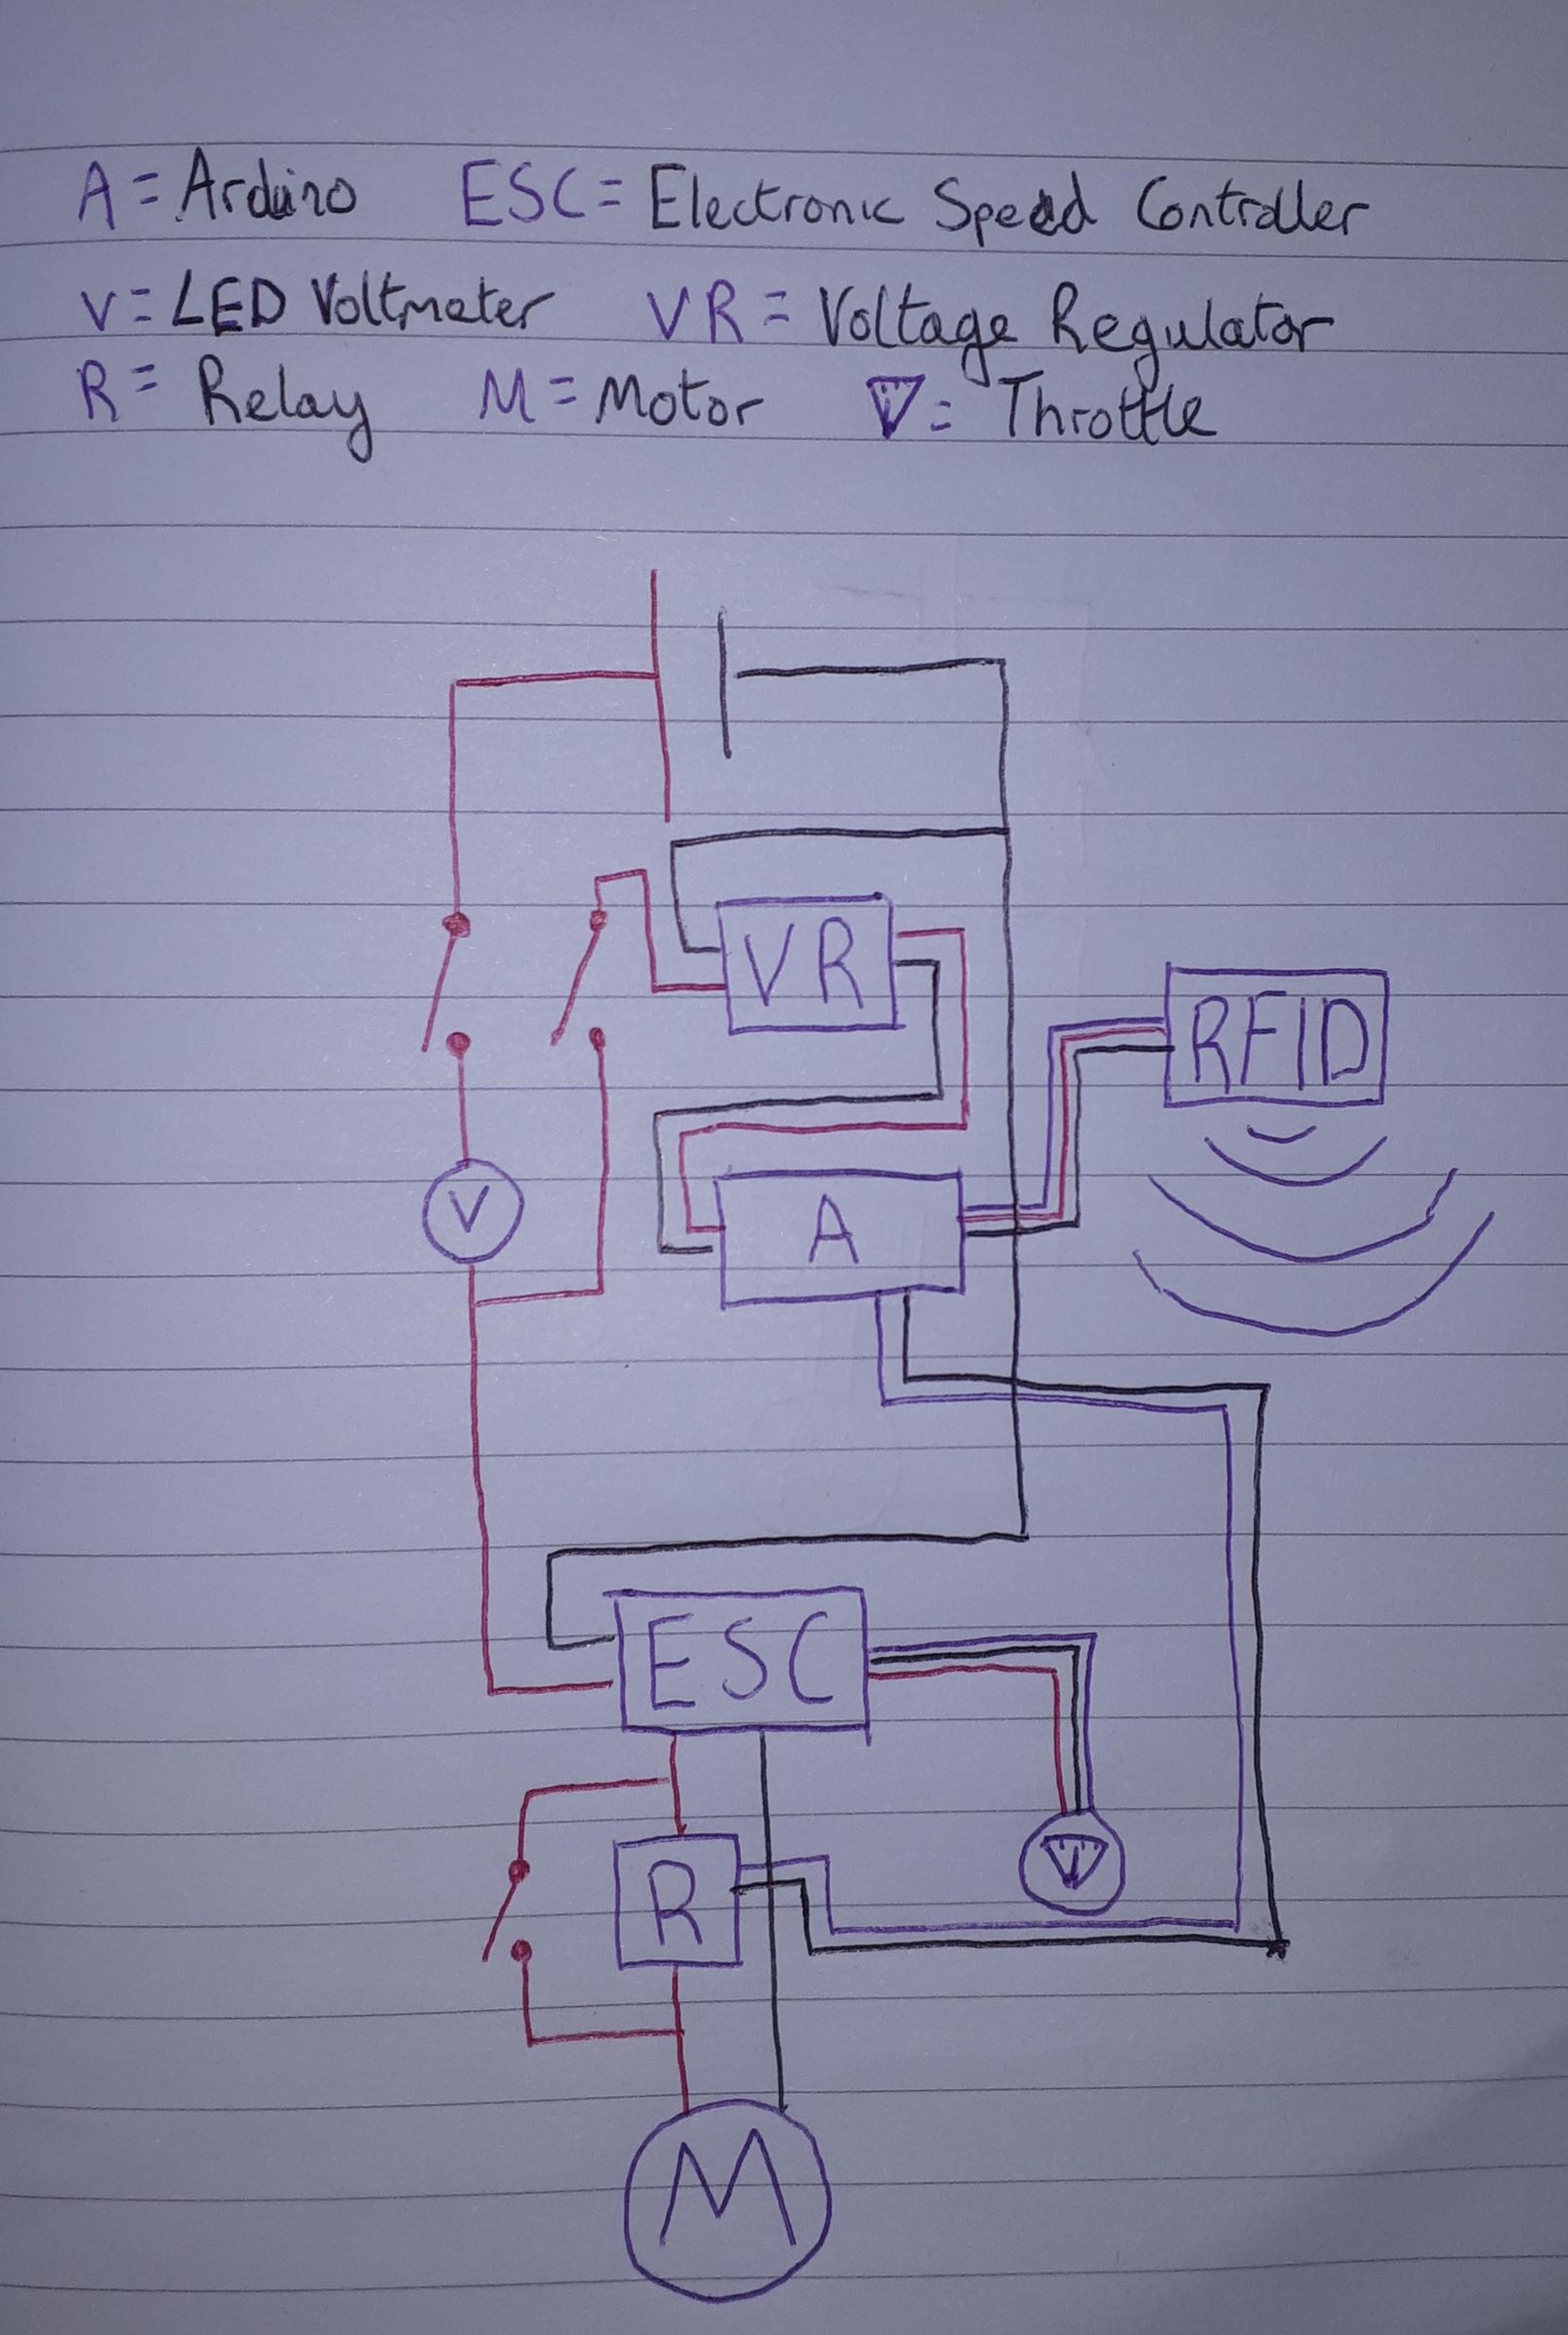 A = Arduino ESC = Electronic Speed Controller
V = LED Voltmeter VR = Voltage Regulator
R = Relay M = Motor = Throttle
VR
RFID
V
A
ESC
R
M